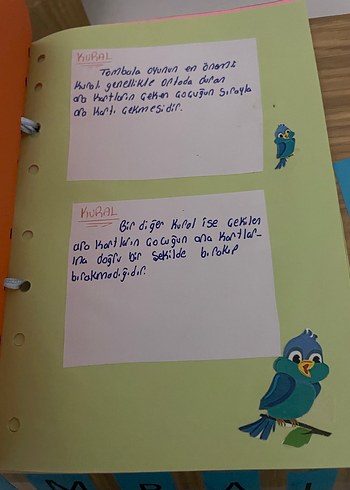 KURAL
Tombala oyunun en önemli
kuralı genellikle ortada duran
ara kartların çeken çocuğun sırayla
ara kart çekmesidir.
KURAL
Bir diğer kural ise çekilen
ara kartların çocuğun ana kartlar-
ına doğru bir şekilde bırakıp
bırakmadığıdır.